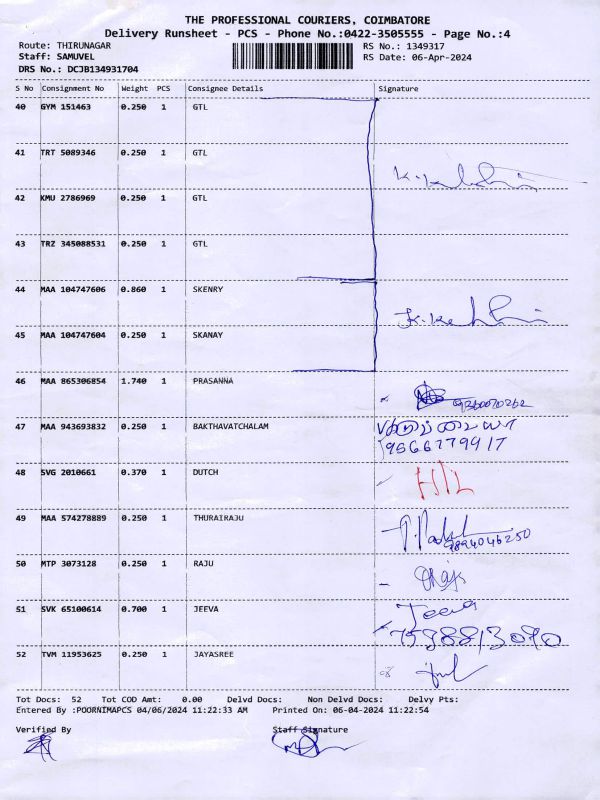 THE PROFESSIONAL COURIERS, COIMBATORE
Delivery Runsheet - PCS - Phone No.:0422-3505555 - Page No.:4
Route: THIRUNAGAR RS No.: 1349317
Staff: SAMUVEL RS Date: 06-Apr-2024
DRS No.: DCJB134931704
S No Consignment No Weight PCS Consignee Details Signature
40 GYM 151463 0.250 1 GTL
41 TRT 5089346 0.250 1 GTL
42 KMU 2786969 0.250 1 GTL
43 TRZ 345088531 0.250 1 GTL
44 MAA 104747606 0.860 1 SKENRY
45 MAA 104747604 0.250 1 SKANAY
46 MAA 865306854 1.740 1 PRASANNA
9360070262
47 MAA 943693832 0.250 1 BAKTHAVATCHALAM
9566779917
48 SVG 2010661 0.370 1 DUTCH
49 MAA 574278889 0.250 1 THURAIRAJU
9894046250
50 MTP 3073128 0.250 1 RAJU
51 SVK 65100614 0.700 1 JEEVA Jeeva
7538813090
52 TVM 11953625 0.250 1 JAYASREE
Tot Docs: 52 Tot COD Amt: 0.00 Delvd Docs: Non Delvd Docs: Delvy Pts:
Entered By :POORNIMAPCS 04/06/2024 11:22:33 AM Printed On: 06-04-2024 11:22:54
Verified By Staff Signature